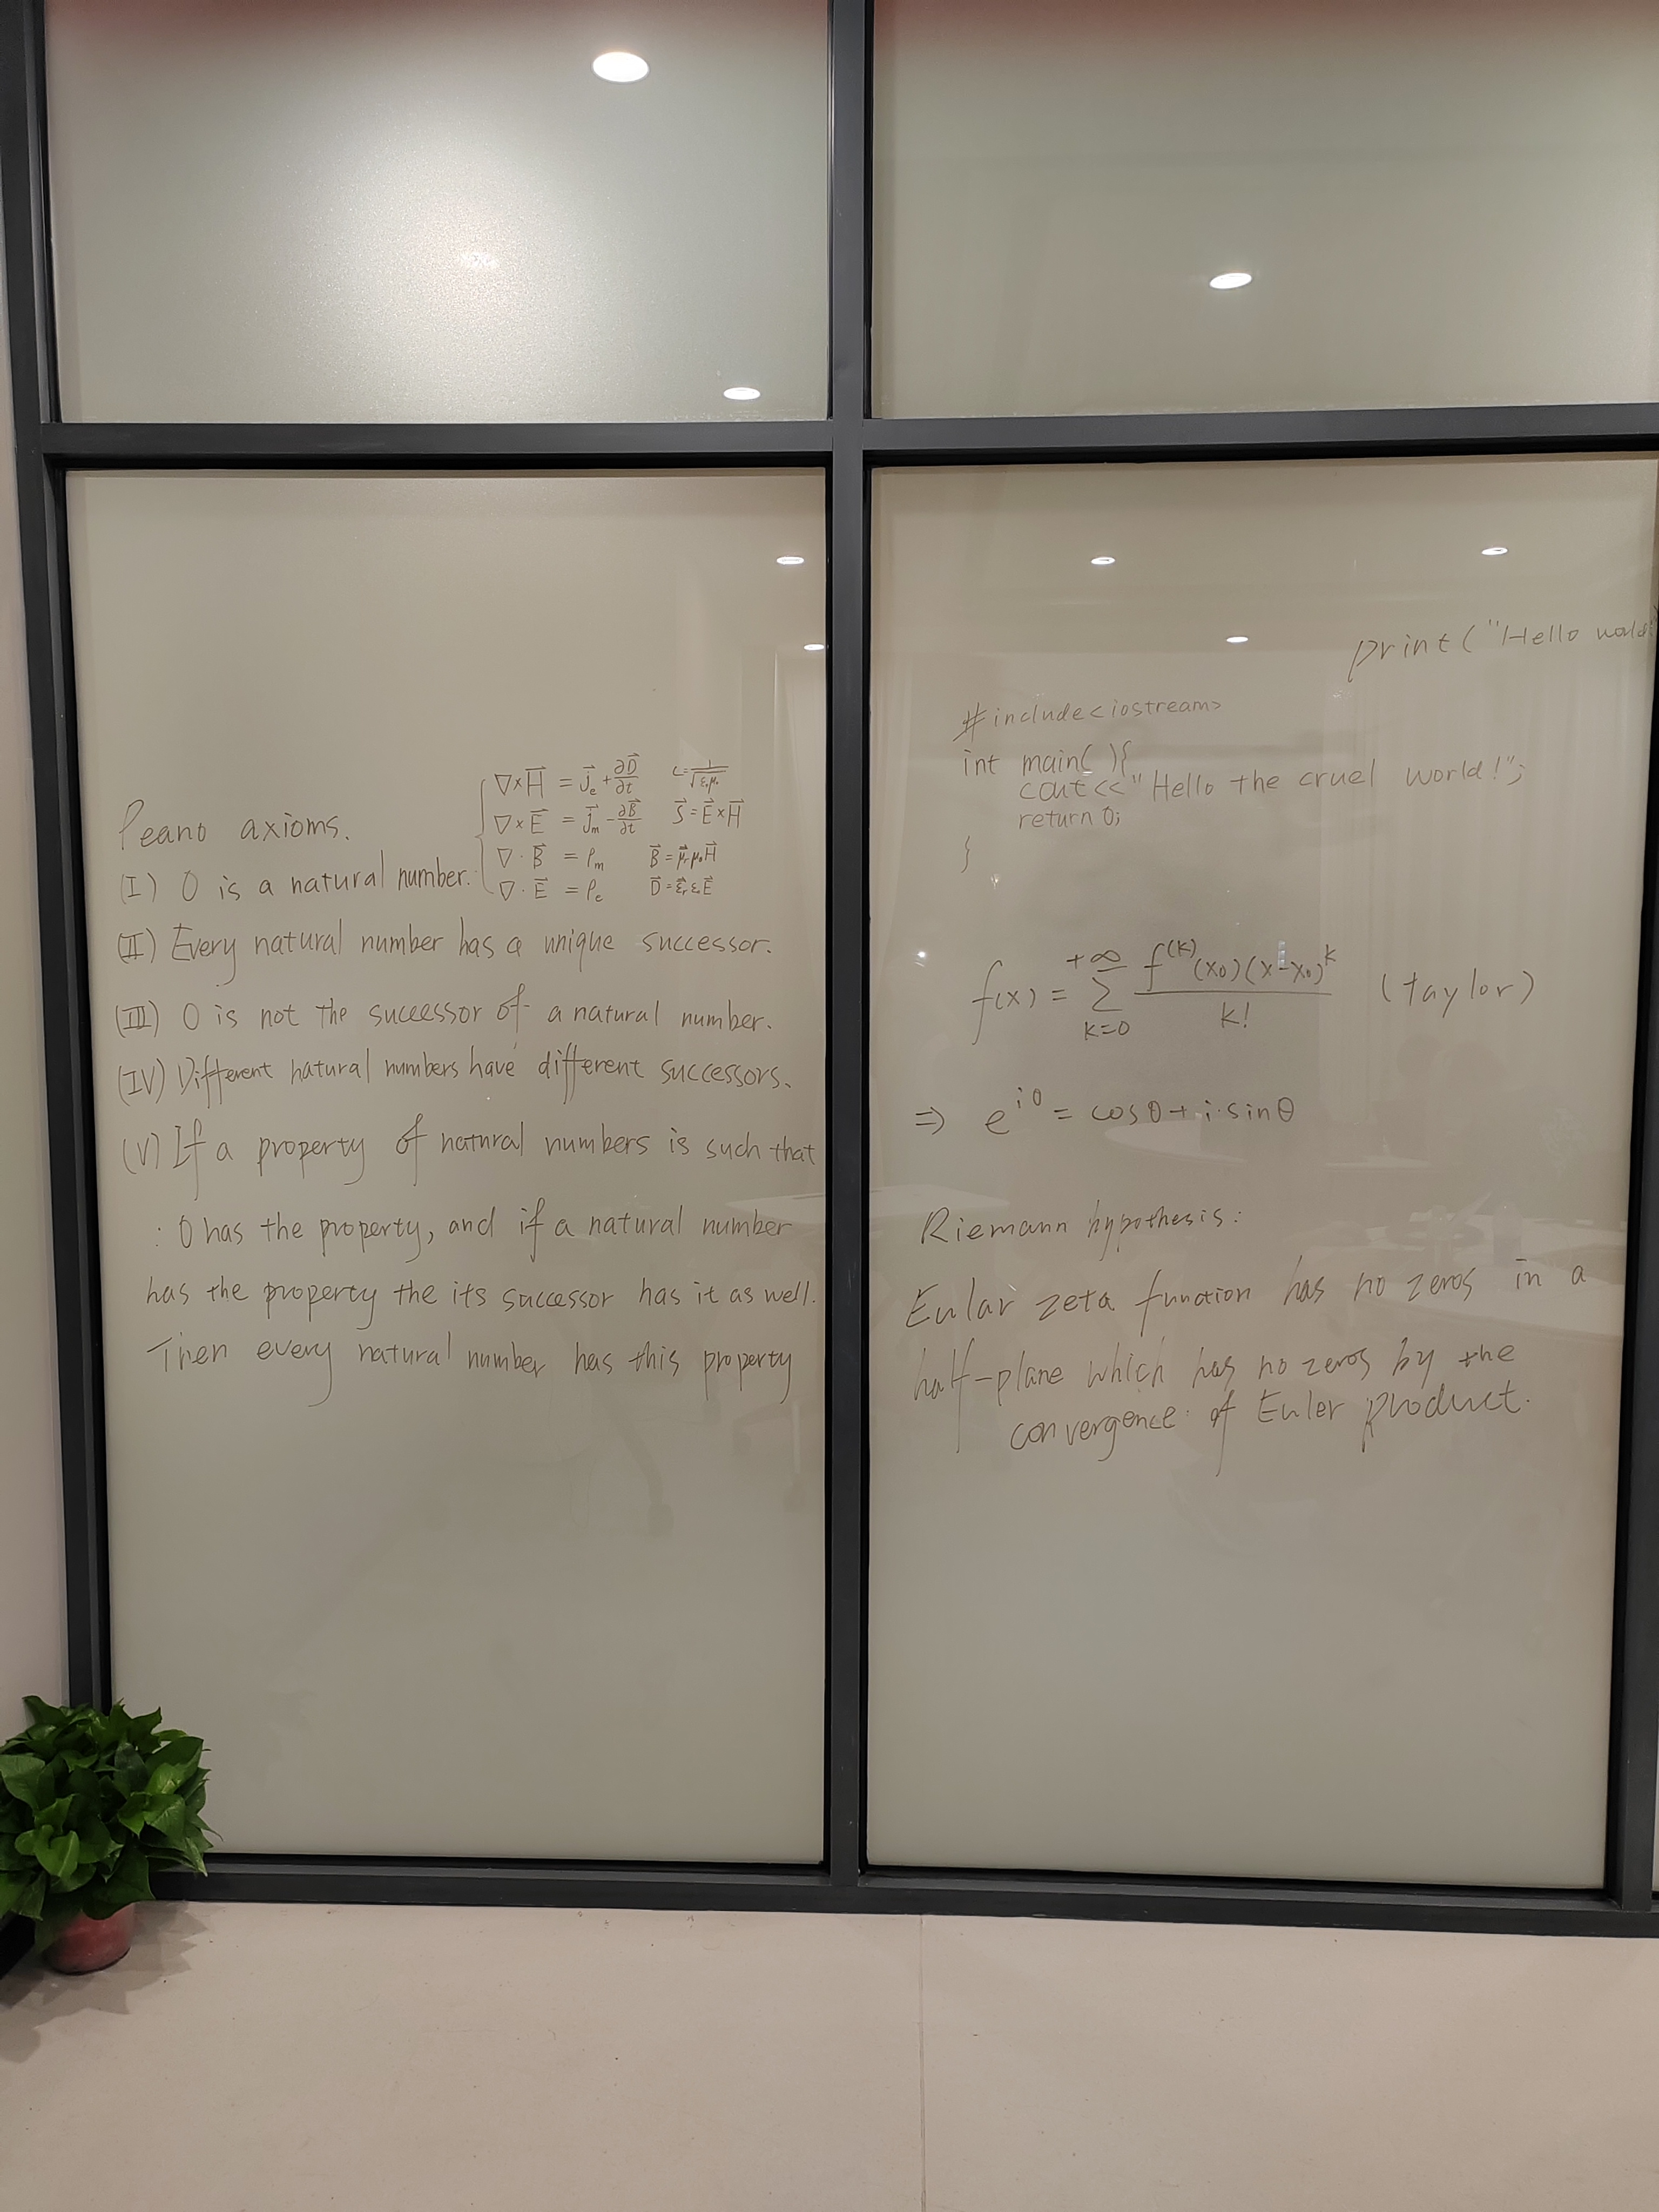 Peano axioms.
∇×H⃗ = J⃗e + ∂D⃗/∂t   c = 1/√(ε₀μ₀)
∇×E⃗ = J⃗m - ∂B⃗/∂t   S⃗ = E⃗×H⃗
∇·B⃗ = ρm   B⃗ = μ⃗rμ₀H⃗
∇·E⃗ = ρe   D⃗ = ε⃗rε₀E⃗
(I) 0 is a natural number.
(II) Every natural number has a unique successor.
(III) 0 is not the successor of a natural number.
(IV) Different natural numbers have different successors.
(V) If a property of natural numbers is such that
: 0 has the property, and if a natural number
has the property the its successor has it as well.
Then every natural number has this property
print("Hello world
#include<iostream>
int main( ){
cout<<"Hello the cruel world!";
return 0;
}
f(x) = +∞ Σ k=0 f^(k)(x₀)(x-x₀)^k / k!   (taylor)
⇒ e^iθ = cosθ + i·sinθ
Riemann hypothesis:
Eular zeta function has no zeros in a
half-plane which has no zeros by the
convergence of Euler product.